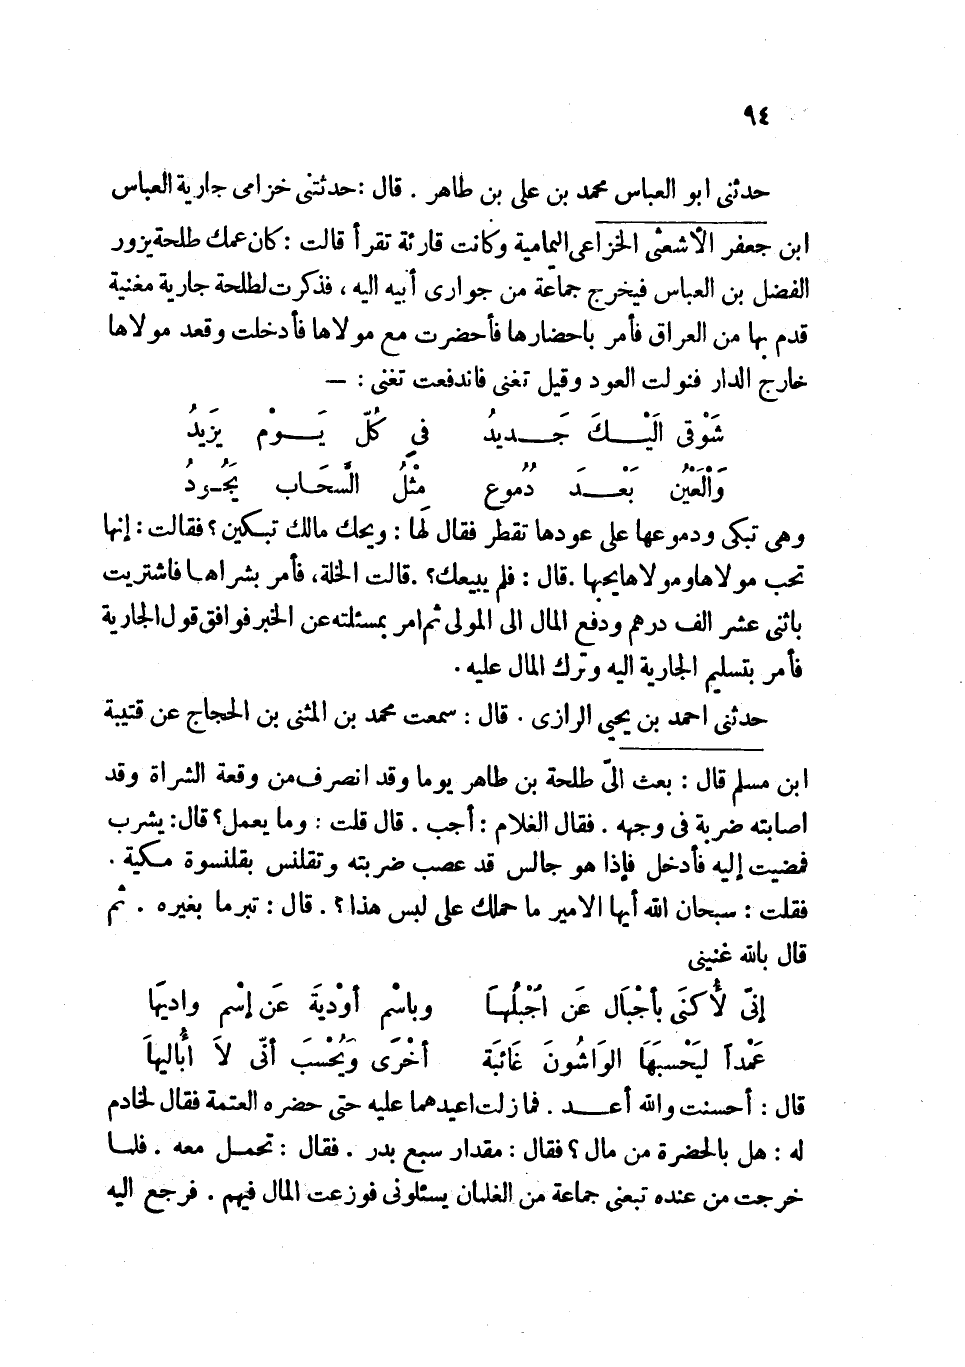 ٩٤
حدثنى ابو العباس محمد بن على بن طاهر . قال : حدثتنى خزامى جارية العباس
ابن جعفر الأشعثى الخزاعى اليمامية وكانت قارئة تقرأ قالت : كان عمك طلحة يزور
الفضل بن العباس فيخرج جماعة من جوارى أبيه اليه ، فذكرت لطلحة جارية مغنية
قدم بها من العراق فأمر باحضارها فأحضرت مع مولاها فأدخلت وقعد مولاها
خارج الدار فنولت العود وقيل تغنى فاندفعت تغنى : —
شَوْقى الَيْـــكَ جَـــديدُ فى كُلّ يَـــوْم يَزيدُ
وَالْعَيْنُ بَعْـــدَ دُموع مثْلُ الَّسحَاب يَجُـودُ
وهى تبكى ودموعها على عودها تقطر فقال لها : ويحك مالك تبـكين ؟ فقالت : إنها
تحب مولاها ومولاها يحبها . قال : فلم يبيعك؟ . قالت الخلة، فأمر بشراهـا فاشتريت
باثنى عشر الف درهم ودفع المال الى المولى ثم امر بمسئلته عن الخبر فوافق قول الجارية
فأمر بتسليم الجارية اليه وترك المال عليه .
حدثنى احمد بن يحيى الرازى . قال : سمعت محمد بن المثنى بن الحجاج عن قتيبة
ابن مسلم قال : بعث الىّ طلحة بن طاهر يوما وقد انصرف من وقعة الشراة وقد
اصابته ضربة فى وجهه . فقال الغلام : أجب . قال قلت : وما يعمل؟ قال: يشرب
فمضيت إليه فأدخل فإذا هو جالس قد عصب ضربته وتقلنس بقلنسوة مـكية .
فقلت : سبحان الله أيها الامير ما حملك على لبس هذا ؟ . قال : تبرما بغيره . ثم
قال بالله غنينى
إنىّ لَأُكنَى بأَجْبَال عَن اَجْبُلُهـَا وباسْم أَوْديَة عَن إسْم واديهَا
عَمْداً ليَحْسبَهَا الوَاشُونَ غَائبَة أخْرَى وَيُحْسَبَ أنّى لاَ أُبَاليهَا
قال : أحسنت والله أعـــد . فما زلت اعيدهما عليه حتى حضره العتمة فقال لخادم
له : هل بالحضرة من مال ؟ فقال : مقدار سبع بدر . فقال : تحمـل معه . فلمـا
خرجت من عنده تبعنى جماعة من الغلمان يسئلونى فوزعت المال فيهم . فرجع اليه